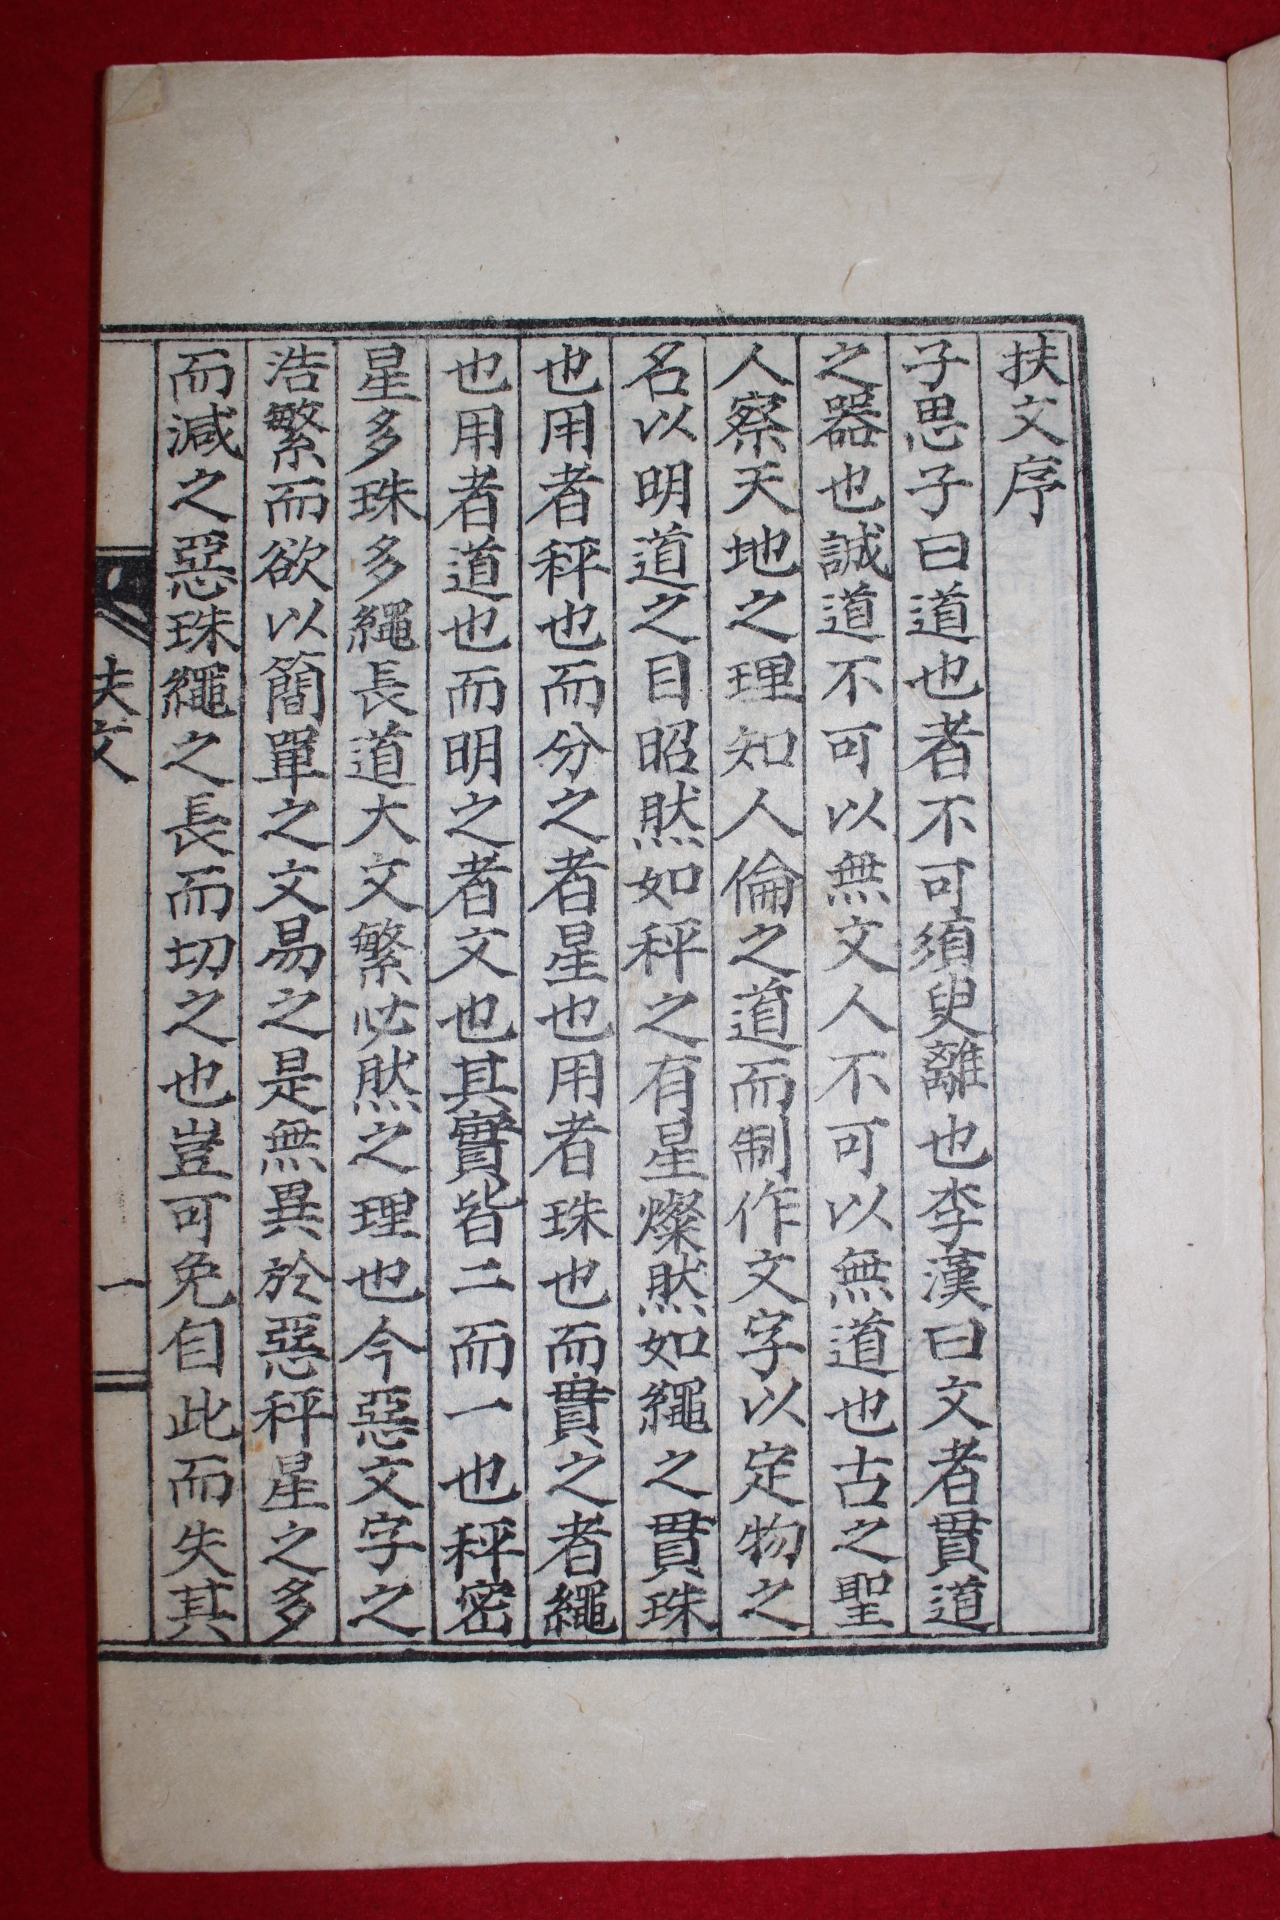 扶文序
子思子曰道也者不可須臾離也李漢曰文者貫道
之器也誠道不可以無文人不可以無道也古之聖
人察天地之理知人倫之道而制作文字以定物之
名以明道之目昭然如秤之有星燦然如繩之貫珠
也用者秤也而分之者星也用者珠也而貫之者繩
也用者道也而明之者文也其實皆二而一也秤密
星多珠多繩長道大文繁必然之理也今惡文字之
浩繁而欲以簡單之文易之是無異於惡秤星之多
而減之惡珠繩之長而切之也豈可免自此而失其
扶文
一